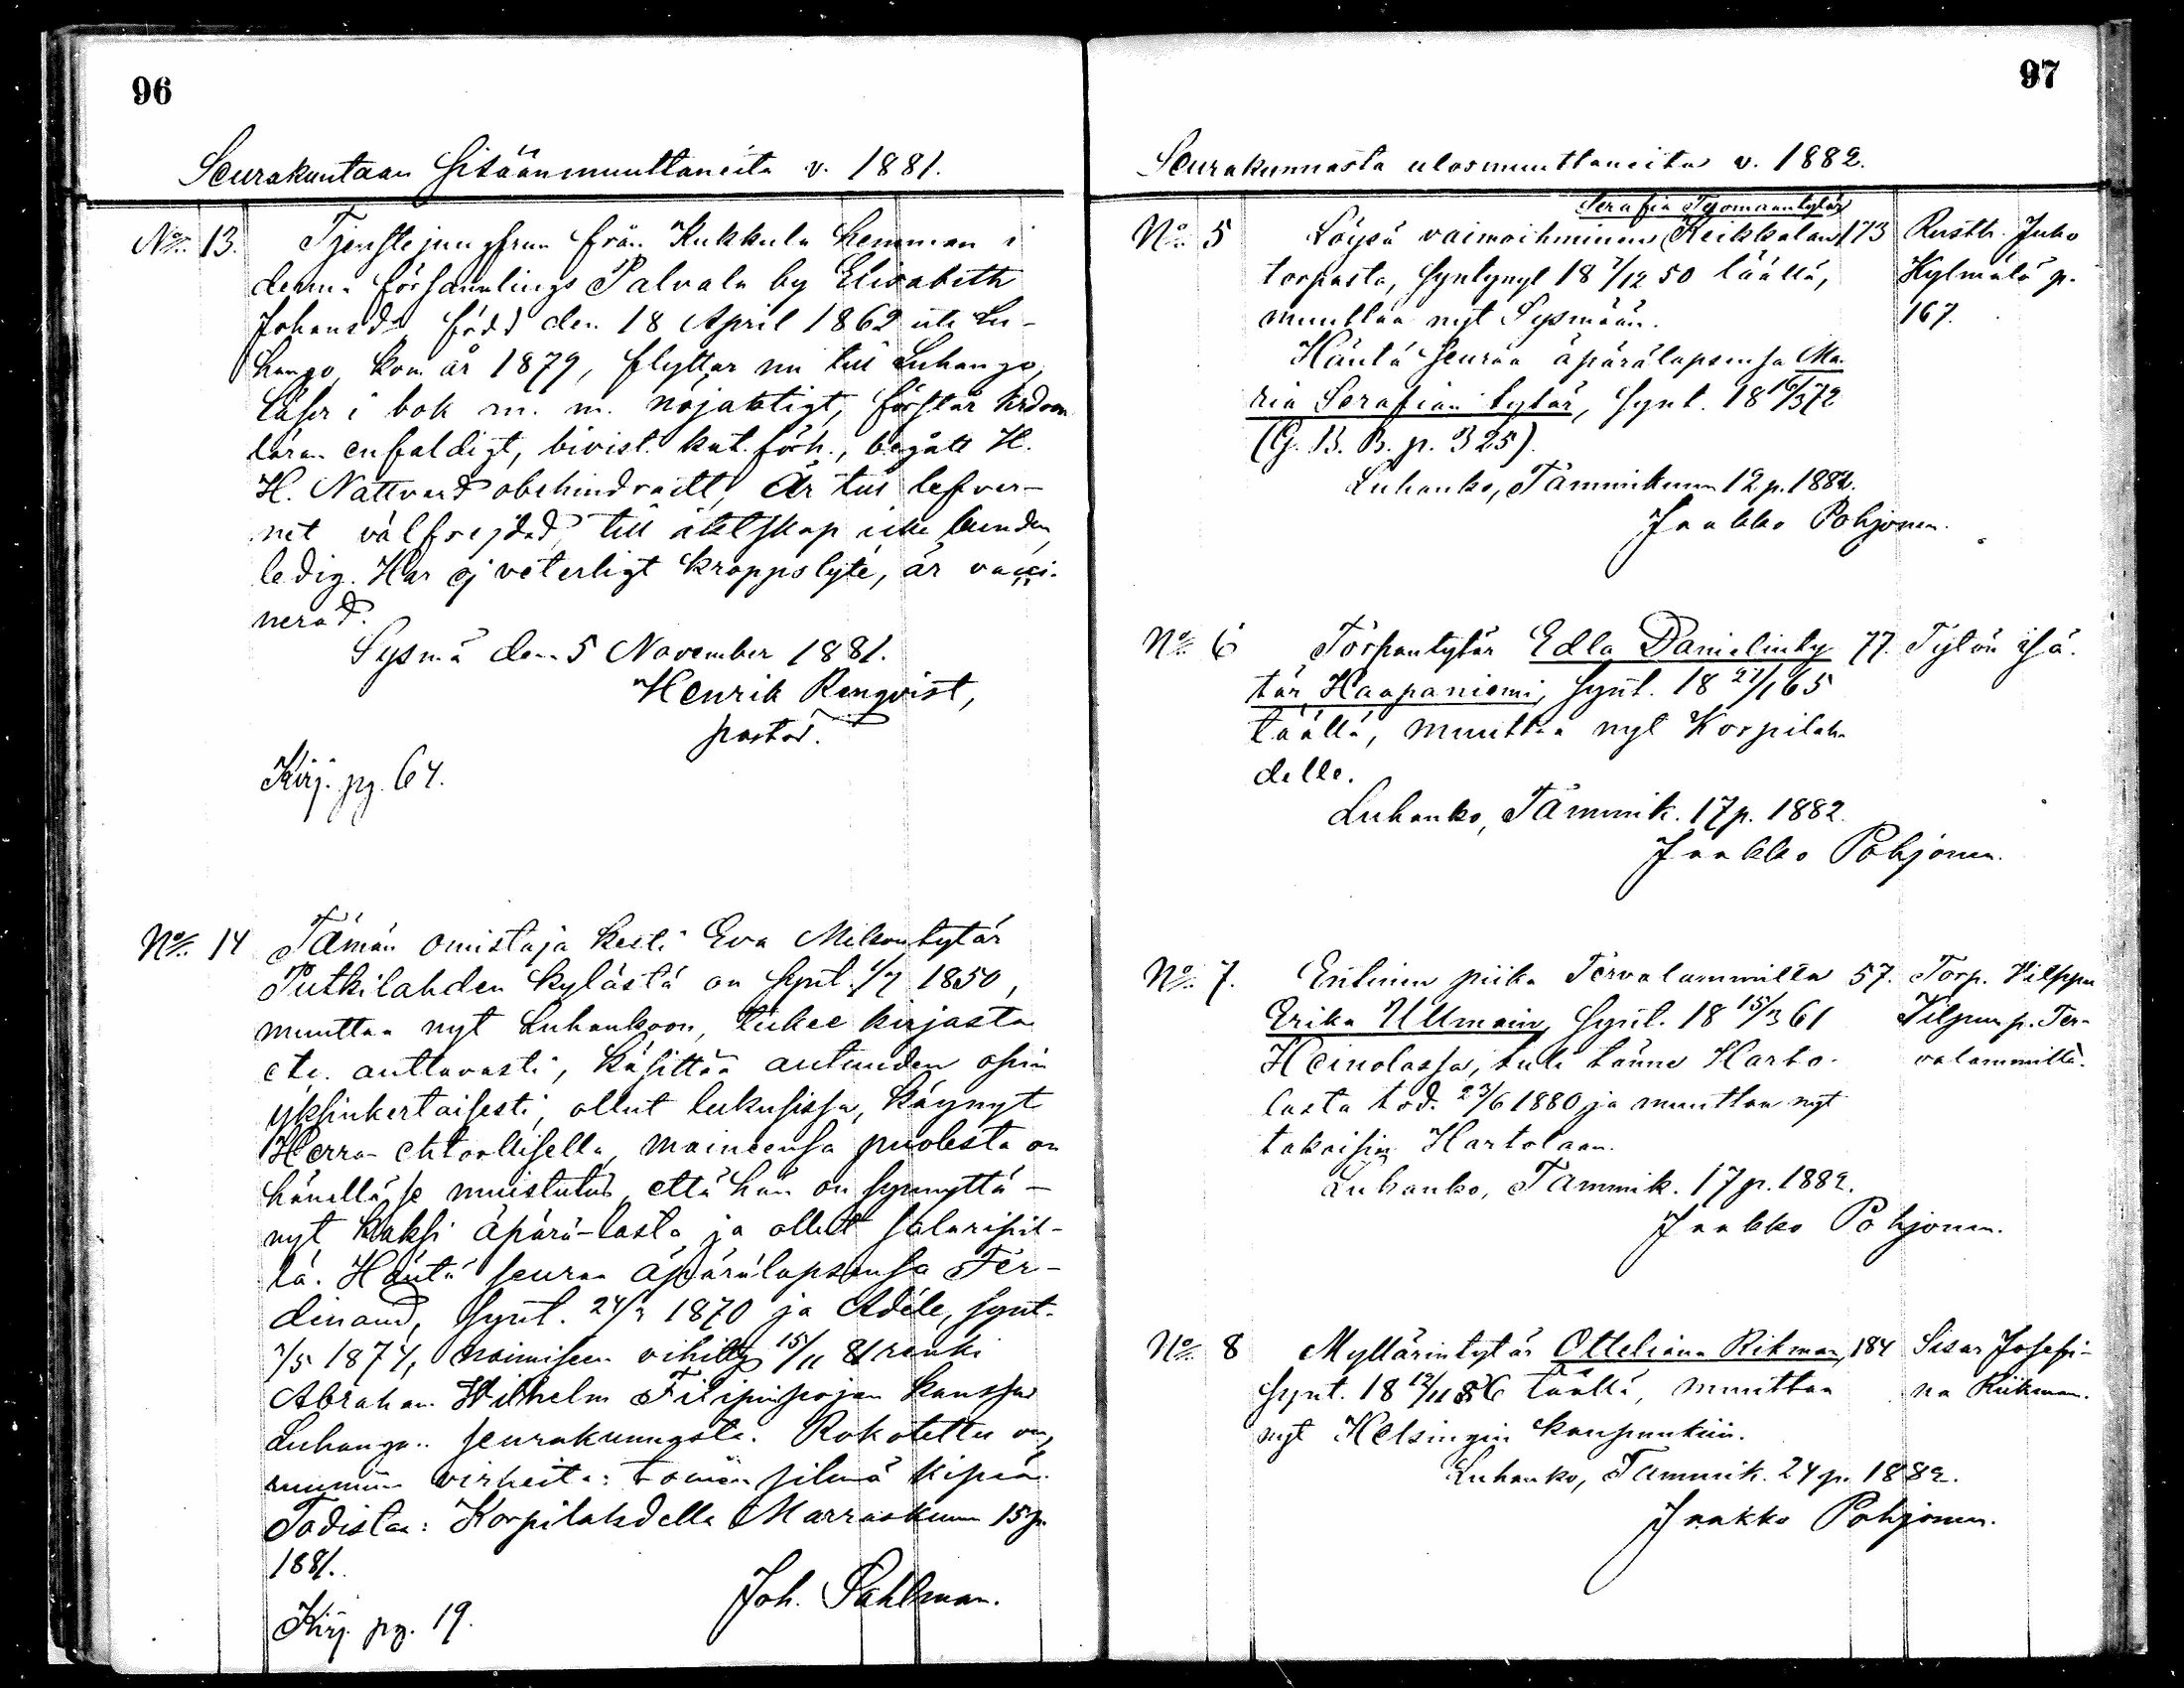 96
Seurakuntaan sisäänmuuttaneita v. 1881.
No 13. Tjenstejungfrun från Kukkula hemman i
denna församlings Palvala by Elisabeth
Johansdr, född den 18 April 1862 uti Lu-
hango, kom år 1879, flyttar nu till Luhango,
läser i bok m. m. nöjaktigt, förstår krdom
läran enfaldigt, bivist. kat. förh., begått H.
H. Nattvard obehindradt, Är till lefver-
net välfrejdad, till äktskap icke bunden,
ledig. Har ej veterligt kroppslyte, är vacci-
nerad.
Sysmä den 5 November 1881.
Henrik Renqvist,
pastor.
Kirj. pg. 64.
No 14 Tämän omistaja Eva
Putkilahden kylästä on synt. 1/7 1850,
muuttaa nyt Luhankoon, lukee kirjasta
etc. auttavasti, käsittää autuuden opin
yksinkertaisesti, ollut lukusissa, käynyt
Herran ehtoollisella, maineensa puolesta on
hänellä se muistutus, että hän on synnyttä-
nyt kaksi äpärä-lasta ja ollut salaripil-
lä. Häntä seuraa äpärälapsensa Fer-
dinand, synt. 1870 ja Adéle, synt.
7/5 1874, naimiseen vihitty 15/11 81 renki
Abraham Wilhelm Filipinpojan kanssa
Luhangon seurakunnasta. Rokotettu on,
ruumiin virheitä: toinen silmä kipiä.
Todistaa: Korpilahdella Marraskuun 15 p.
1881.
Joh. Pahlman.
Kirj. pg. 19.
97
Seurakunnasta ulosmuuttaneita v. 1882.
Serafia
No 5 Löysä vaimoihminen Keikkalan 173 Rusth. Juho
torpasta, syntynyt 18 7/12 50 täällä, Kylmälä p.
muuttaa nyt Sysmään. 167.
Häntä seuraa äpärälapsensa Ma
ria Serafian tytär, synt. 18 16/3 72
(G. B. B. p. 325).
Luhanko, Tammikuun 12 p. 1882.
Jaakko Pohjonen.
No 6 Torpantytär Edla Danielinty 77. Tytön isä.
tär Haapaniemi, synt. 18 21/1 65
täällä, muuttaa nyt Korpilah
delle.
Luhanko, Tammik. 17 p. 1882.
Jaakko Pohjonen.
No 7. Entinen piika Tervalammilta 57. Torp. Vilppu
Erika Ullmain, synt. 18 15/3 61 p. Ter-
Heinolassa, tuli tänne Harto- valammilla.
lasta tod. 23/6 1880 ja muuttaa nyt
takaisin Hartolaan.
Luhanko, Tammik. 17 p. 1882.
Jaakko Pohjonen.
No 8 Myllärintytär Otteliana Rikman, 184 Sisar Josefi-
synt. 18 12/11 56 täällä, muuttaa na Riikman.
nyt Helsingin kaupunkiin.
Luhanko, Tammik. 24 p. 1882.
Jaakko Pohjonen.